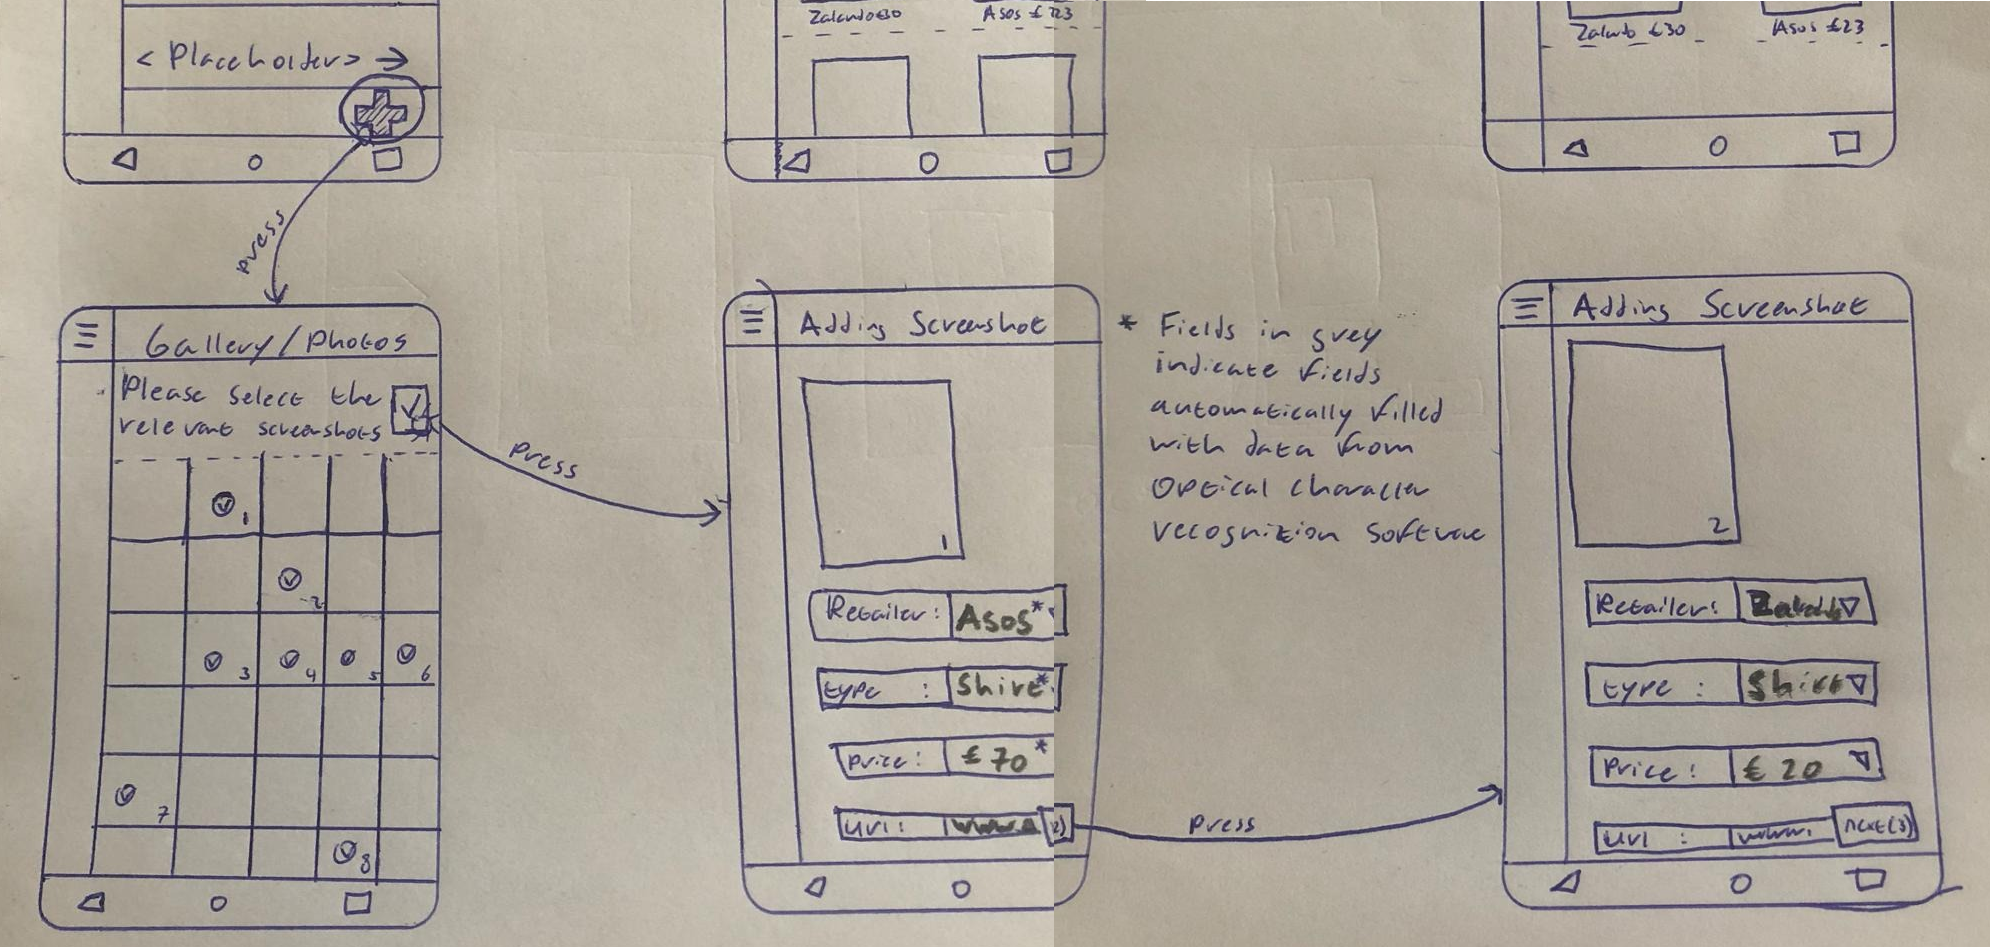 < Placeholder >
Zalando £30
Asos £ 123
Zalando £30
Asos £23
press
Gallery / Photos
Please select the
relevant screenshots
1
2
3 4 5 6
7
8
press
Adding Screenshot
1
Retailer: Asos*
type : Shirt*
Price: £70*
Url: www.a 2)
* Fields in grey
indicate fields
automatically filled
with data from
Optical character
recognizion software
press
Adding Screenshot
2
Retailer: Zalando
type : Shirt
Price: £20
Url : www. next(3)